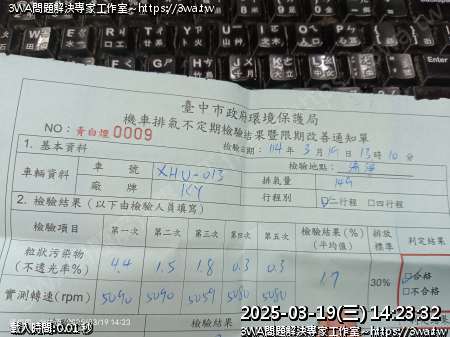 3WA問題解決專家工作室~https://3wa.tw
臺中市政府環境保護局
機車排氣不定期檢驗結果暨限期改善通知單
NO：青白煙0009
檢驗日期：114年3月19日13時10分
1. 基本資料
檢驗地點：
車輛資料
車號
XHU-013
排氣量
149
廠牌
KY
行程別
☑二行程 □四行程
2. 檢驗結果（以下由檢驗人員填寫）
檢驗項目 第一次 第二次 第三次 第四次 第五次 檢驗結果(%)(平均值) 排放標準 判定結果
粒狀污染物(不透光率%) 4.4 1.5 1.8 0.3 0.3 1.7 30% ☑合格
□不合格
實測轉速(rpm) 5090 5090 5059 5080 5080
2025-03-19(三) 14:23:32
載入時間: 0.01 秒
檢驗結果
3WA問題解決專家工作室~https://3wa.tw